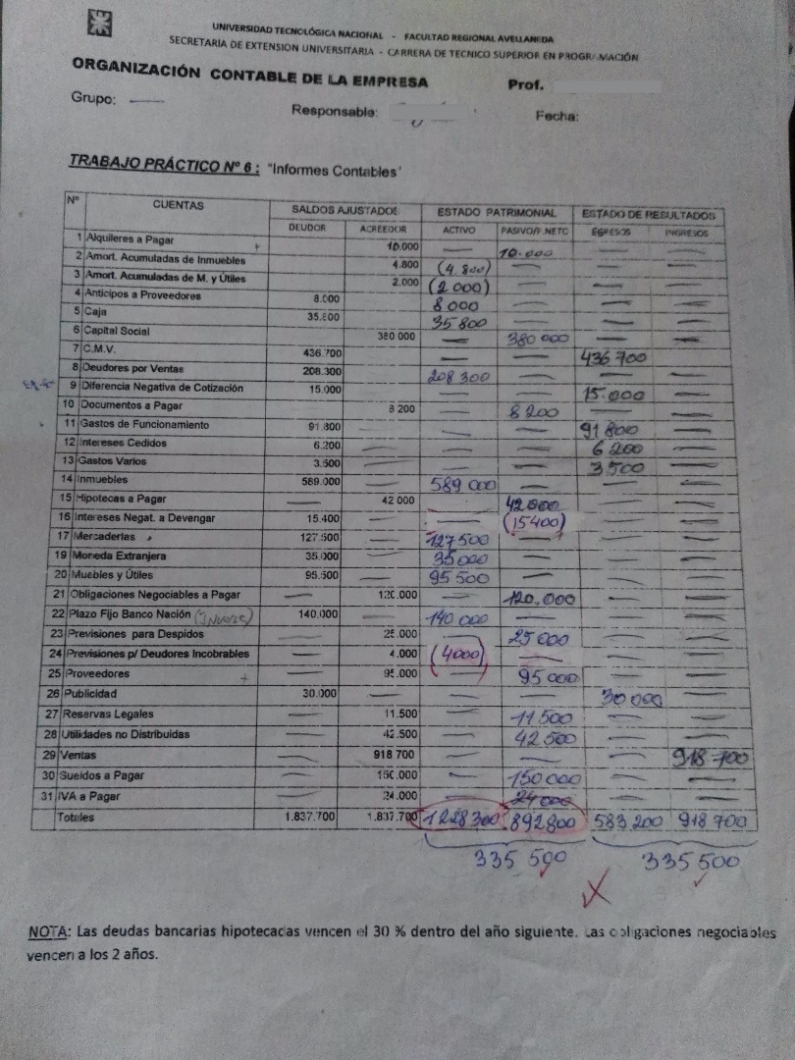 UNIVERSIDAD TECNOLÓGICA NACIONAL - FACULTAD REGIONAL AVELLANEDA
SECRETARIA DE EXTENSION UNIVERSITARIA - CARRERA DE TECNICO SUPERIOR EN PROGRAMACIÓN
ORGANIZACIÓN CONTABLE DE LA EMPRESA Prof.
Grupo: Responsable: Fecha:
TRABAJO PRÁCTICO Nº 6 : "Informes Contables"
Nº CUENTAS SALDOS AJUSTADOS ESTADO PATRIMONIAL ESTADO DE RESULTADOS
DEUDOR ACREEDOR ACTIVO PASIVO/P.NETO EGRESOS INGRESOS
1 Alquileres a Pagar + 10.000 10.000 —
2 Amort. Acumuladas de Inmuebles 4.800 (4.800) — — —
3 Amort. Acumuladas de M. y Útiles 2.000 (2.000) — — —
4 Anticipos a Proveedores 8.000 8000 — — —
5 Caja 35.800 35800 — — —
6 Capital Social 380.000 — 380000 — —
7 C.M.V. 436.700 — — 436700 —
8 Deudores por Ventas 208.300 208300 — — —
9 Diferencia Negativa de Cotización 15.000 — — 15.000 —
10 Documentos a Pagar 8.200 — 8200 — —
11 Gastos de Funcionamiento 91.800 — — — 91800 —
12 Intereses Cedidos 6.200 — — — 6200 —
13 Gastos Varios 3.500 — — — 3500 —
14 Inmuebles 589.000 — 589000 — — —
15 Hipotecas a Pagar — 42.000 — 42000 — —
16 Intereses Negat. a Devengar 15.400 — — (15400) — —
17 Mercaderías 127.500 — 127500 — — —
19 Moneda Extranjera 35.000 — 35000 — — —
20 Muebles y Útiles 95.500 — 95500 — — —
21 Obligaciones Negociables a Pagar 120.000 — 120.000 — —
22 Plazo Fijo Banco Nación (INVERS) 140.000 — 140000 — — —
23 Previsiones para Despidos — 25.000 — 25000 — —
24 Previsiones p/ Deudores Incobrables — 4.000 (4000) — — —
25 Proveedores + — 95.000 — 95000 — —
26 Publicidad 30.000 — — — 30000 —
27 Reservas Legales — 11.500 — 11500 — —
28 Utilidades no Distribuidas — 42.500 — 42500 — —
29 Ventas — 918.700 — — — 918700
30 Sueldos a Pagar — 150.000 — 150000 — —
31 IVA a Pagar — 24.000 — 24000 — —
Totales 1.837.700 1.837.700 1228300 892800 583200 918700
335500 335500
NOTA: Las deudas bancarias hipotecadas vencen el 30 % dentro del año siguiente. Las obligaciones negociables
vencen a los 2 años.